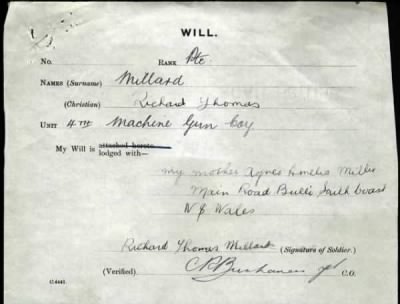 WILL.
No. RANK Pte
NAMES (Surname) Millard
(Christian) Richard Thomas
UNIT 4TH Machine Gun Coy
My Will is attached hereto
lodged with—
my mother Agnes Amelia
Main Road Bulli South Coast
N S Wales
Richard Thomas Millard (Signature of Soldier.)
(Verified) C.O.
C.4441.